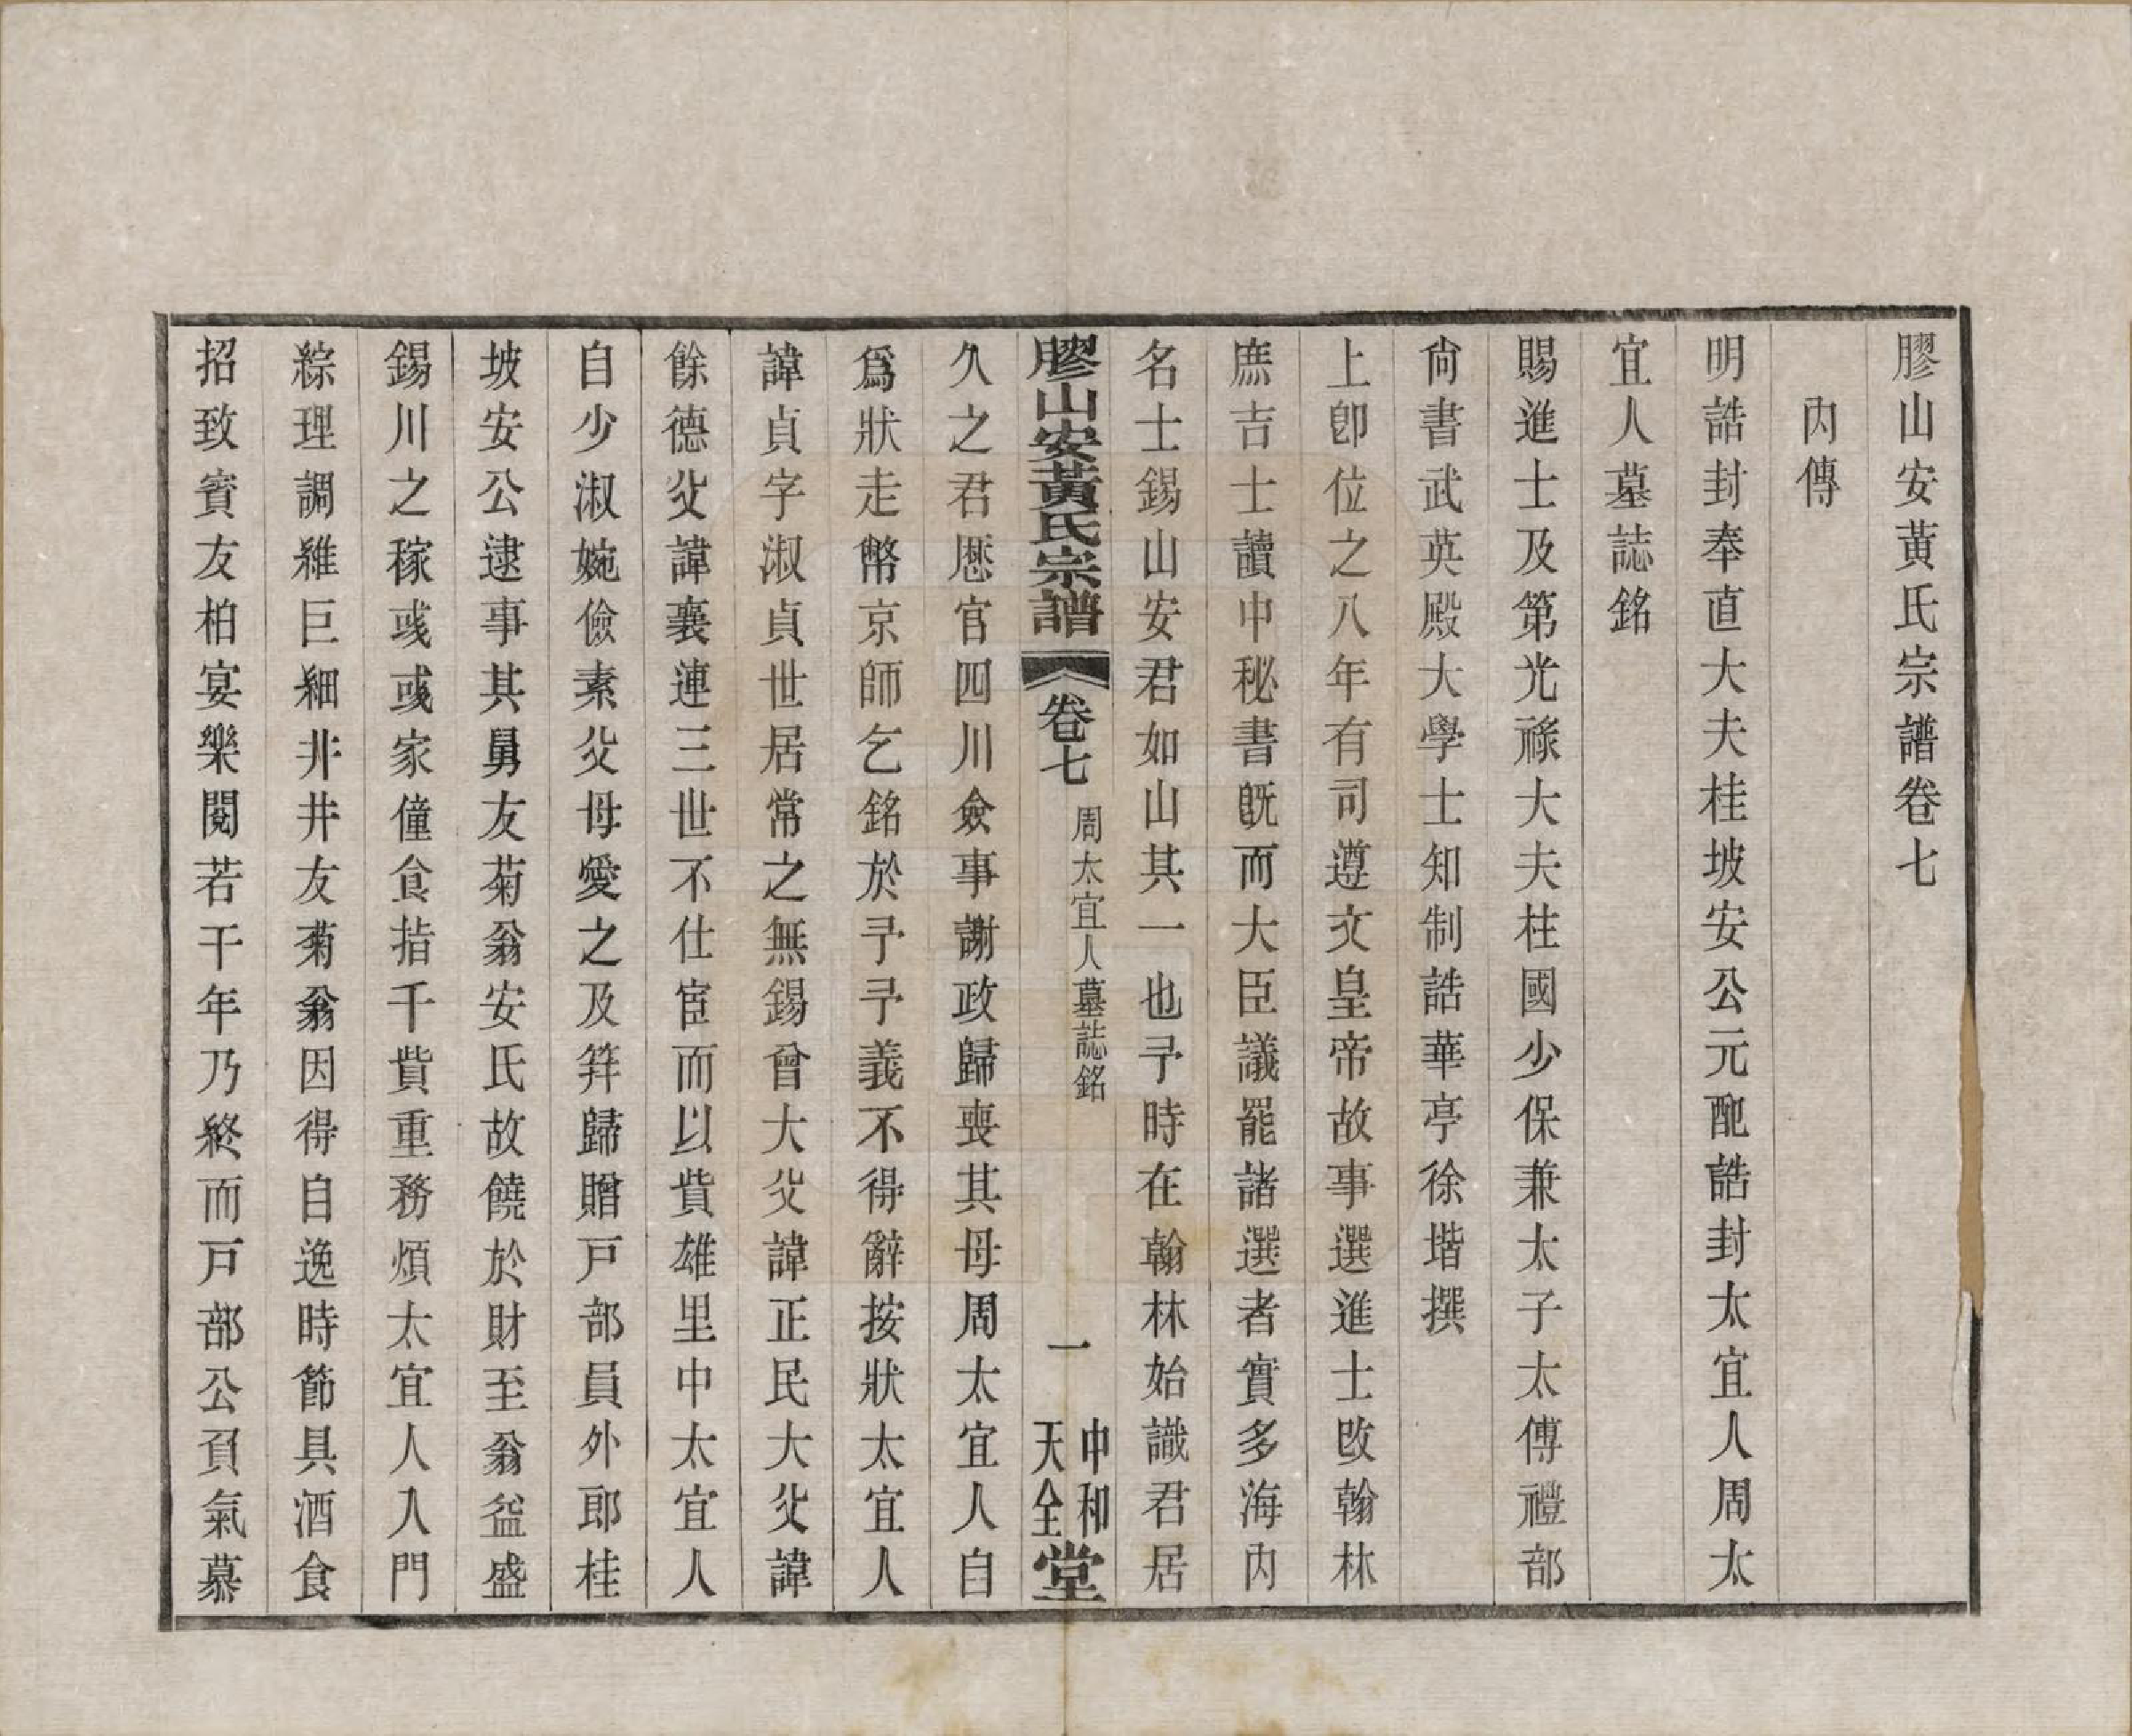 膠山安黃氏宗譜卷七
內傳
明誥封奉直大夫桂坡安公元配誥封太宜人周太
宜人墓誌銘
賜進士及第光祿大夫柱國少保兼太子太傅禮部
尙書武英殿大學士知制誥華亭徐堦撰
上卽位之八年有司遵文皇帝故事選進士改翰林
庶吉士讀中秘書旣而大臣議罷諸選者實多海內
名士錫山安君如山其一也予時在翰林始識君居
膠山安黃氏宗譜
卷七
周太宜人墓誌銘
一
中和
天全
堂
久之君歷官四川僉事謝政歸喪其母周太宜人自
爲狀走幣京師乞銘於予予義不得辭按狀太宜人
諱貞字淑貞世居常之無錫曾大父諱正民大父諱
餘德父諱襄連三世不仕宦而以貲雄里中太宜人
自少淑婉儉素父母愛之及笄歸贈戶部員外郎桂
坡安公逮事其舅友菊翁安氏故饒於財至翁益盛
錫川之稼彧彧家僮食指千貲重務煩太宜人入門
綜理調維巨細井井友菊翁因得自逸時節具酒食
招致賓友柏宴樂閱若干年乃終而戶部公負氣慕